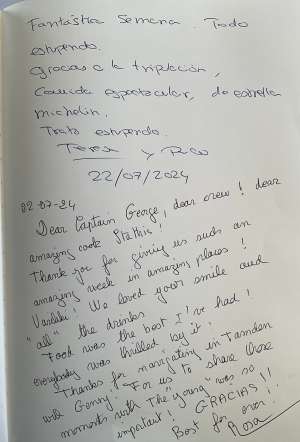 Fantástica Semana. Todo
estupendo.
gracias a la tripulación,
Comida espectacular, de estrella
michelin.
Trato estupendo.
Teresa y Paco
22/07/2024
22-07-24
Dear Captain George, dear crew! dear
amazing cook Stathis!
Thank you for giving us such an
amazing week in amazing places!
Vasiliki! We loved your smile and
"all" the drinks
Food was the best I've had!
everybody was thrilled by it!
Thanks for navigating in Tandem
with Gonny! For us to share those
moments with "The young" was so
important! GRACIAS!!
Best for ever!!
Rosa